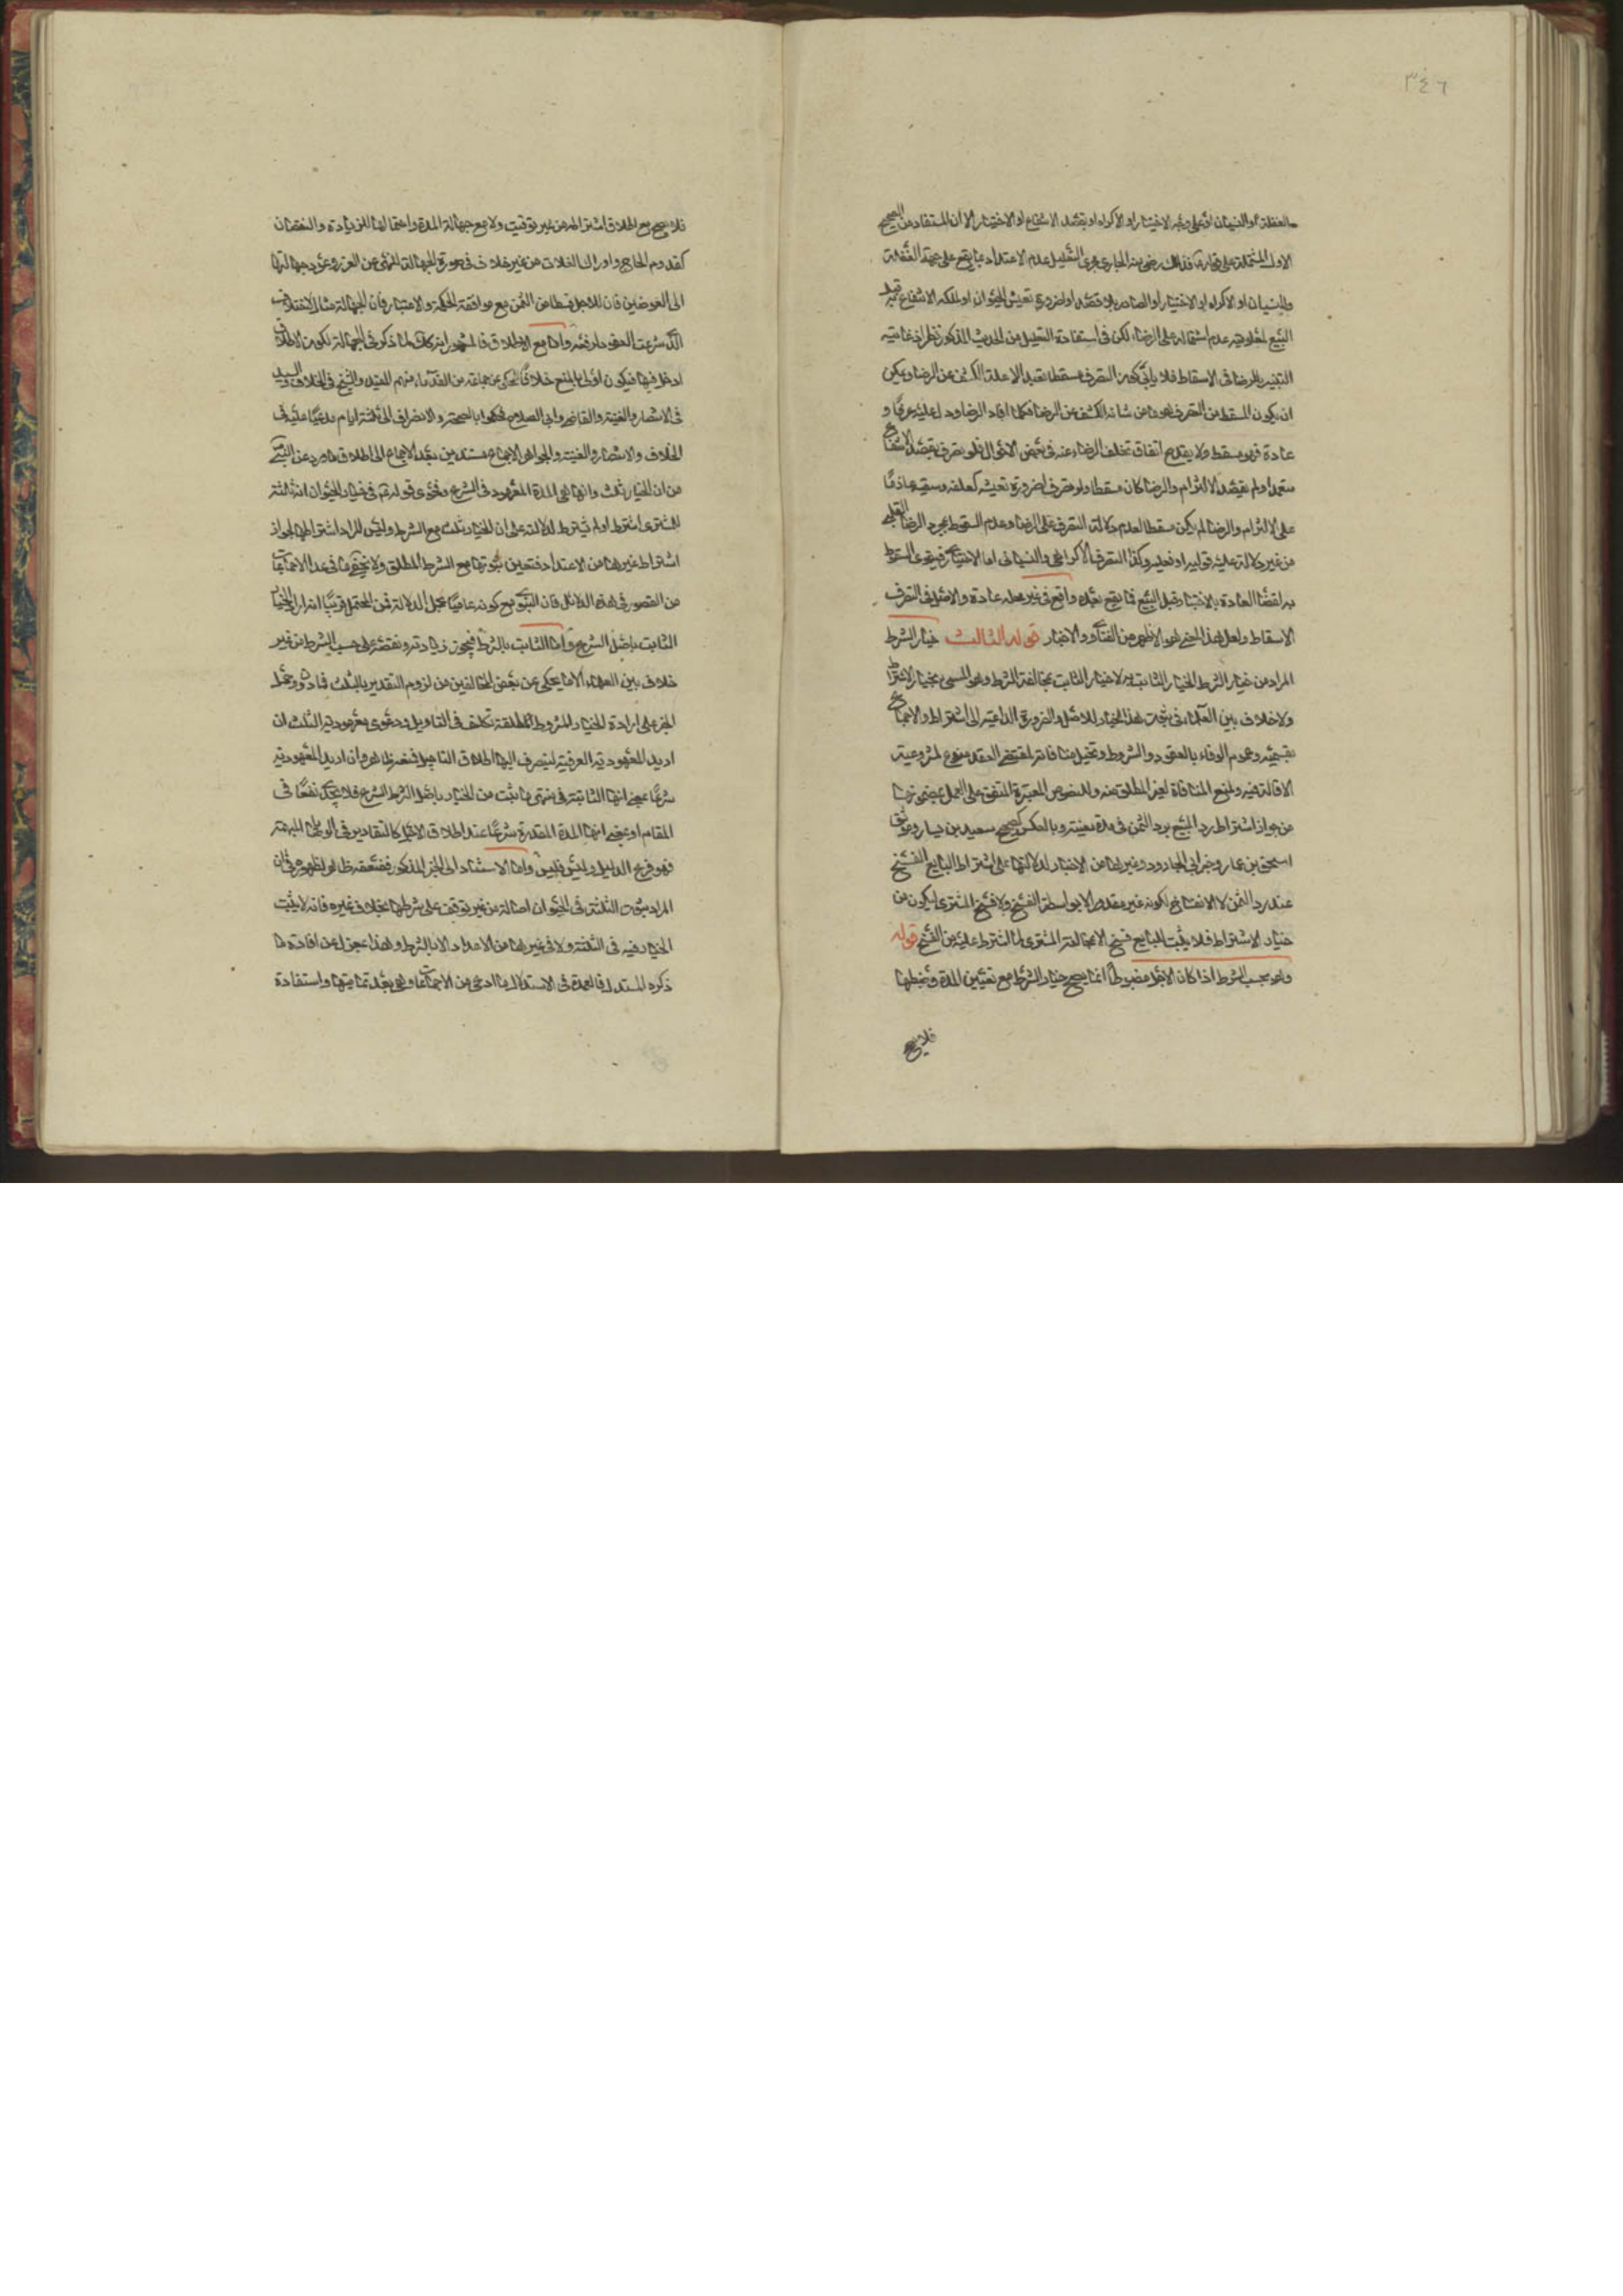 ٣٤٦
الغفلة او النسيان او على وجه الاختيار او الاكراه او بقصد الانتفاع او الاختبار الا ان المستفاد من الصحيح
الاول المشتملة على قوله فذلك رضى منه الجارى مجرى التعليل عدم الاعتداد بما يقع على جهة الغفلة
والنسيان او الاكراه او الاختبار او الصادر بلا قصد او لضرورة تعيش الحيوان او لملكه الانتفاع به قبل
البيع لمعلومية عدم اشتماله على الرضا لكن فى استفادة التعليل من الحديث المذكور نظر اذ غايته
الرضا فى الاسقاط فلا كون التصرف مسقطا تعبدا لا علة الكشف عن الرضا ويمكن
ان يكون المسقط من التصرف هو ما من شانه الكشف عن الرضا فكلما افاد الرضا ودل عليه عرفا و
عادة فهو مسقط ولا يقدح اتفاق تخلف الرضا عنه فى بعض الاحوال فلو تصرف بقصد الانتفاع
متعمدا ولم يقصد الالتزام والرضا كان مسقطا ولو تصرف لضرورة تعيشه كعلفه وسقيه عازما
على الالتزام والرضا لم يكن مسقطا لعدم دلالة التصرف على الرضا وعدم السقوط بمجرد الرضا القلبى
من غير دلالة عليه قولية او فعلية وكذا التصرف الاكراهى والنسيانى اما الاختبار فيقوى السقوط
به لقضا العادة بالاختبار قبل البيع فما يقع بعده واقع فى غير محله عادة والاصل فى التصرف
الاسقاط ولعل هذا المعنى هو الاظهر من الفتاوى والاخبار قوله الثالث خيار الشرط
المراد من خيار الشرط الخيار الثابت به لا خيار الثابت بمخالفة الشرط وهو المسمى بخيار الاشتراط
ولا خلاف بين العلماء فى ثبوت هذا الخيار للاصل والضرورة الداعية الى اشتراطه والاجماع
بقسميه وعموم الوفاء بالعقود والشروط وتخيل منافاته لمقتضى العقد ممنوع لمشروعية
الاقالة فيه ولمنع المنافاة لغير المطلق منه وللنصوص المعتبرة المتفق على العمل بمضمونها
من جواز اشتراط رد المبيع برد الثمن فى مدة معينة وبالعكس كصحيح سعيد بن يسار وموثق
اسحق بن عمار وخبر ابى الجارود وغيرها من الاخبار لدلالتها على اشتراط البايع الفسخ
عند رد الثمن لا الانفساخ لكونه غير مقدور الا بواسطة الفسخ ولا فسخ المشترى ليكون من
خيار الاشتراط فلا يثبت للبايع فسخ الا بمخالفة المشترى لما اشترط عليه من الفسخ قوله
وهو بحسب الشرط اذا كان الاجل مضبوطا انما يصح خيار الشرط مع تعيين المدة وضبطها
فلا يصح
فلا يصح مع اطلاق اشتراطه من غير توقيت ولا مع جهالة المدة واحتمالها للزيادة والنقصان
كقدوم الحاج وادراك الغلات من غير خلاف فى صورة الجهالة للنهى عن الغرر وعود جهالتها
الى العوضين فان للاجل قسطا من الثمن مع موافقة الحكمة والاعتبار فان الجهالة مثار الاختلاف
الذى شرعت العقود لرفعه واما مع الاطلاق فالمشهور انه كذلك لما ذكر فى الجهالة لكون الاطلاق
ادخل فيها فيكون اولى بالمنع خلافا للمحكى عن جماعة من القدماء منهم المفيد والشيخ فى الخلاف والسيد
فى الانتصار والغنية والقاضى وابى الصلاح فحكموا بالصحة والانصراف الى ثلثة ايام مدعيا عليه فى
الخلاف والانتصار والغنية والجواهر الاجماع مستدلين بعد الاجماع الى اطلاق ما ورد عن النبى
من ان الخيار ثلث وانها هى المدة المعهودة فى الشرع وفحوى قوله فى خيار الحيوان انه ثلثة
للمشترى اشترط او لم يشترط لدلالته على ان الخيار ثلث مع الشرط وليس المراد اشتراطها لجواز
اشتراط غيرها من الاعداد فتعين ثبوتها مع الشرط المطلق ولا يخفى ما فى عدا الاجماعات
من القصور فى هذه الدلائل فان النبوى مع كونه عاميا مجمل الدلالة فمن المحتمل قريبا انه اراد الخيار
الثابت باصل الشرع واما الثابت بالشرط فيجوز زيادته ونقصه على حسب الشرط من غير
خلاف بين العلماء الا ما يحكى عن بعض المخالفين من لزوم التقدير بالثلث وحمل
الخبر على ارادة الخيار المشروط المطلقة تكلف فى التاويل ودعوى معهودية الثلث ان
اريد المعهودية العرفية لينصرف اليها اطلاق التاجيل فمنعه ظاهر وان اريد المعهودية
شرعا بمعنى انها الثابتة فى ما ثبت من الخيار باصل الشرط الشرع فلا يجدى نفعا فى
المقام او بمعنى انها المدة المقدرة شرعا عند اطلاق الاجل كالتقادير فى الوصايا المبهمة
فهو فرع الدليل وليس فليس واما الاستناد الى الخبر المذكور فضعفه ظاهر لظهوره فى ان
المراد ثبوت الثلثة فى الحيوان اصالة من غير توقف على شرطها بخلاف غيره فانه لا يثبت
الخيار فيه فى الثلثة ولا فى غيرها من الاعداد الا بالشرط وهذا بمعزل عن افادة ما
ذكره المستدل فالعمدة فى الاستدلال ما ادعى من الاجماعات وهى بعد تماميتها واستفادة